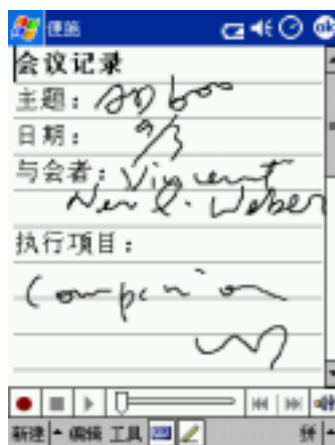 便笺 ok
会议记录
主题：
日期： 9/3
与会者： Vincent
Weber
执行项目：
Companion
新建 编辑 工具 拼